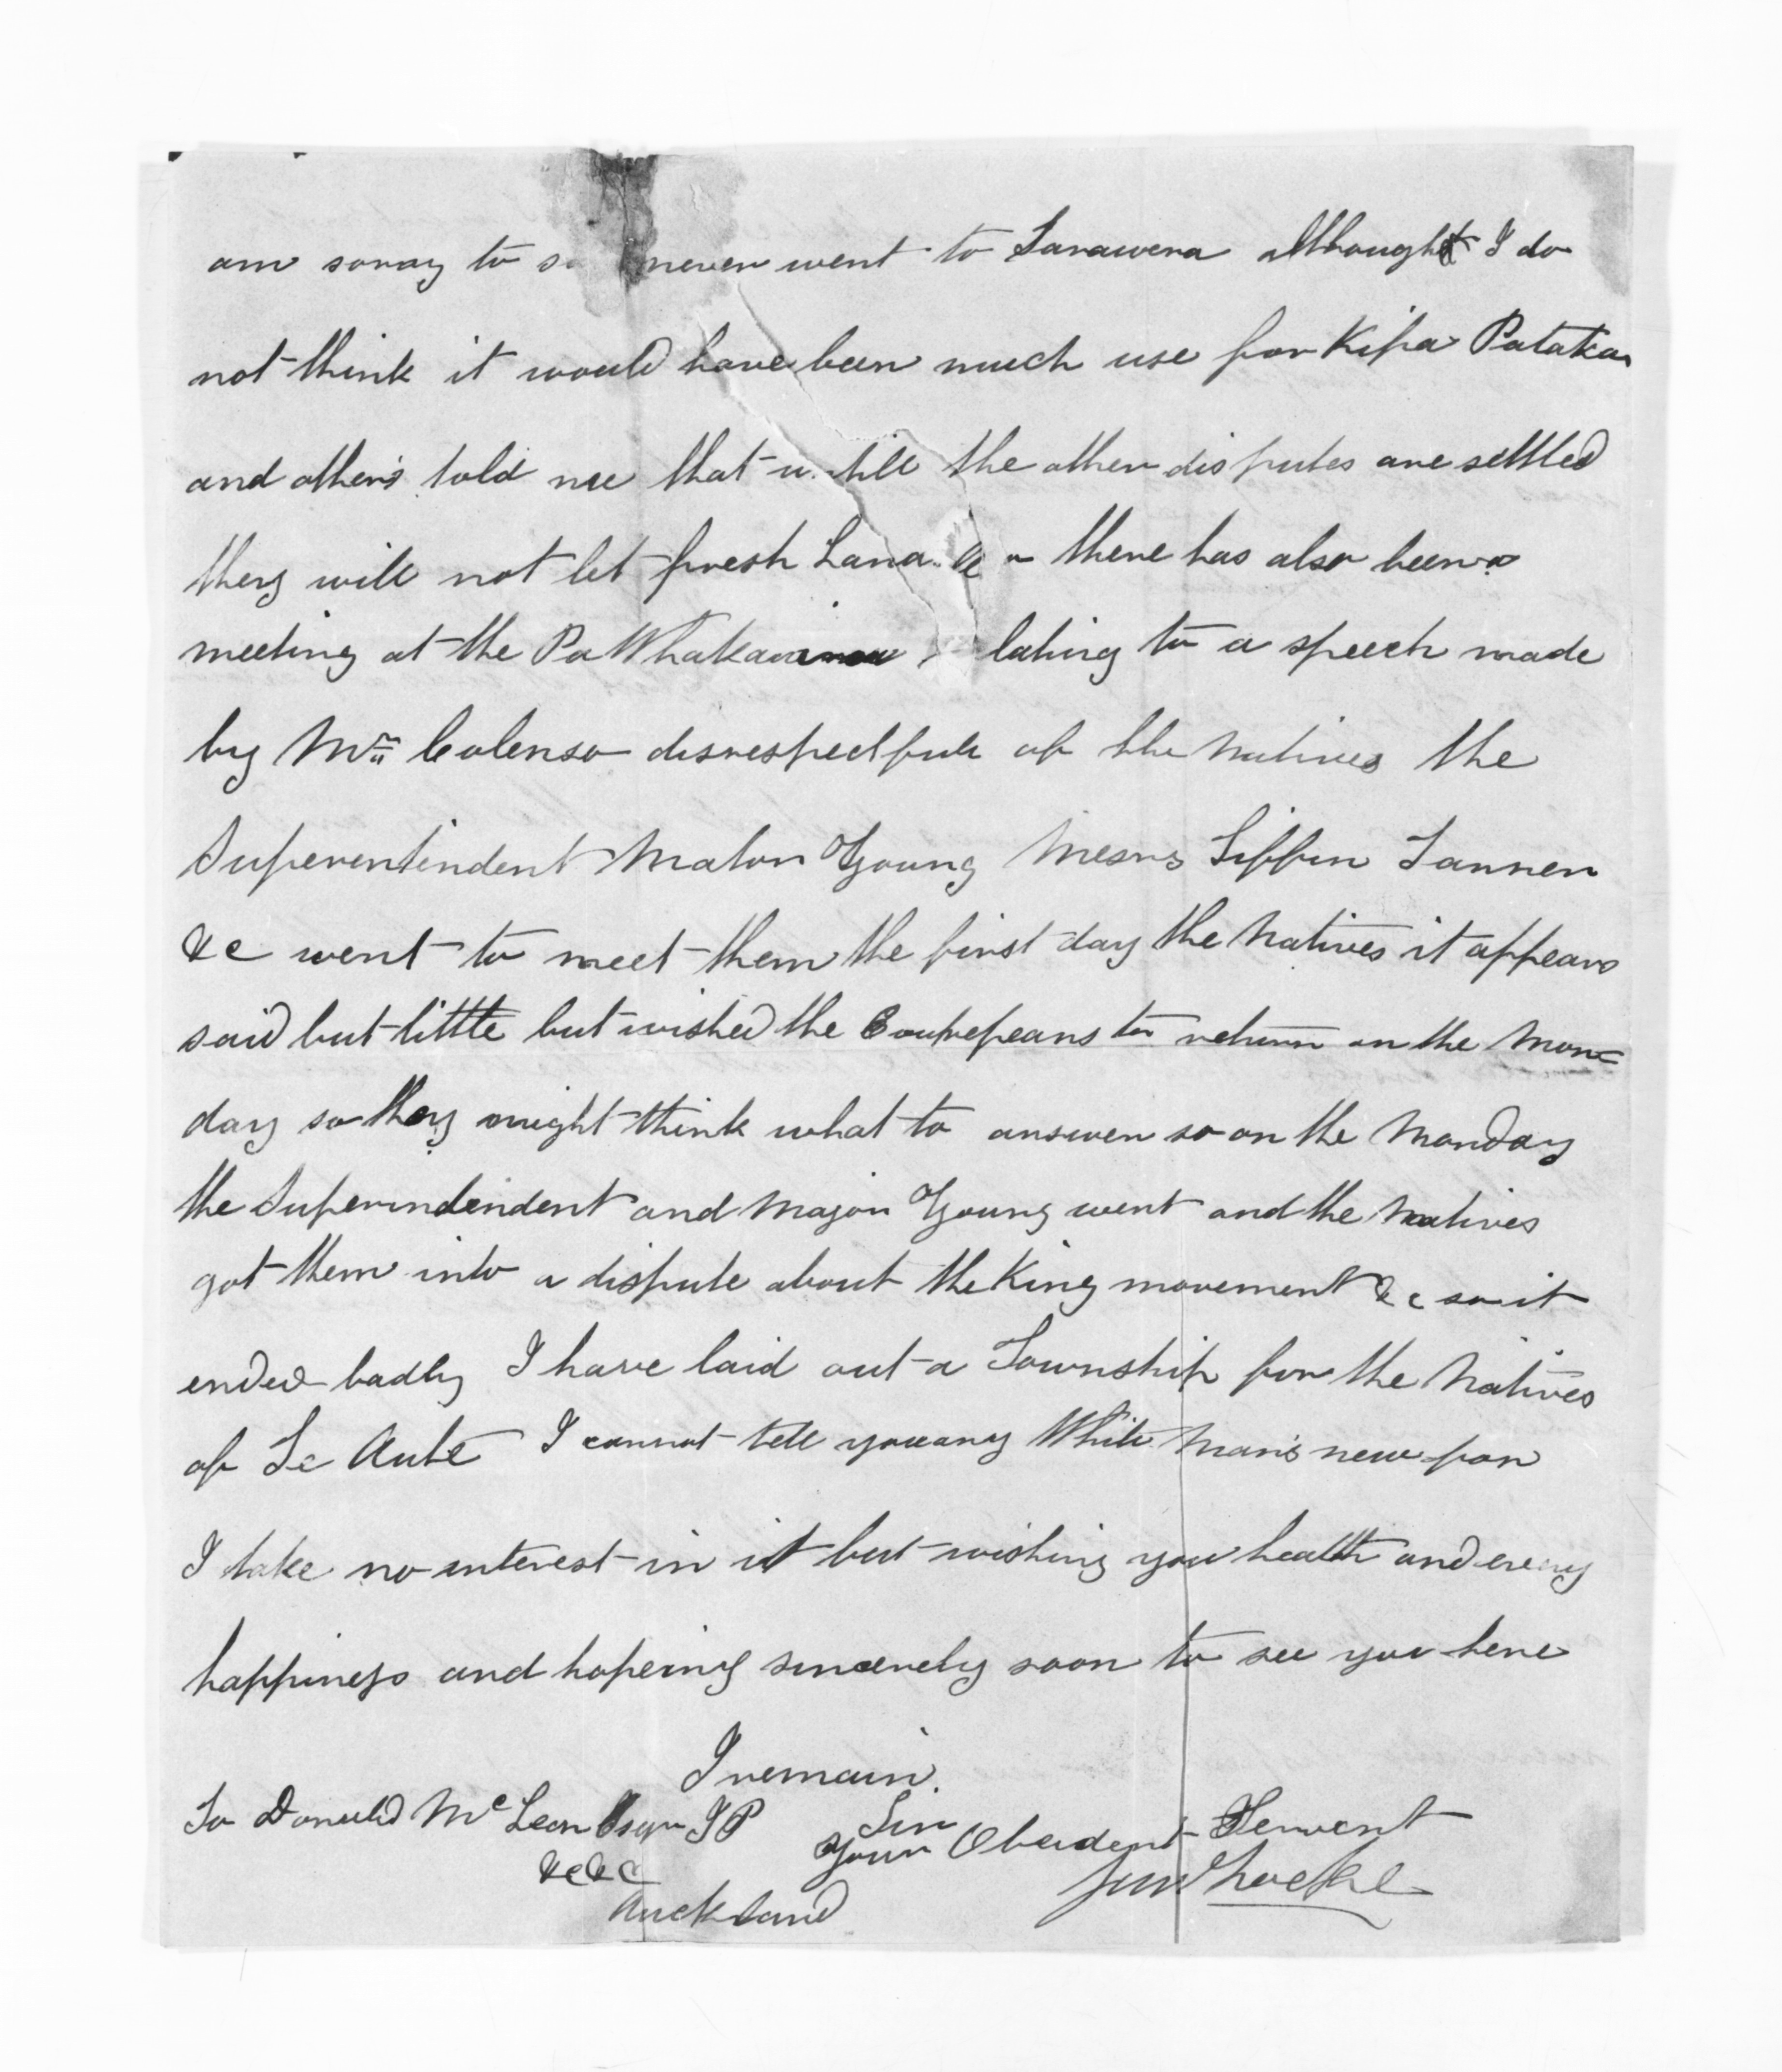 am soray to never went to Tarawera although I do
not think it would have been much use for Kipa Patakar
and others told me that the other disputes are settled
they will not let fresh there has also been a
meeting at the Pa lating to a speech made
by Mr Colenso disrespectfull of the Natives the
Superentindent Mator Young Mesrs Tiffin Tanner
&c went to meet them the first day the Natives it appears
said but little but wished the to return on the Mon=
day so they might think what to answer so on the Monday
the Superindendent and Major Young went and the Natives
got them into a dispute about the King movement &c so it
ended badly I have laid out a Township for the Natives
of Te Aute I cannot tell you any White Man's new for
I take no interest in it but wishing you health and every
happiness and hopeing sincerely soon to see you here
I remain.
Sir
To Donald McLean Esqr JP
Your Obeident Servent
&c&c
Auckland
Locke